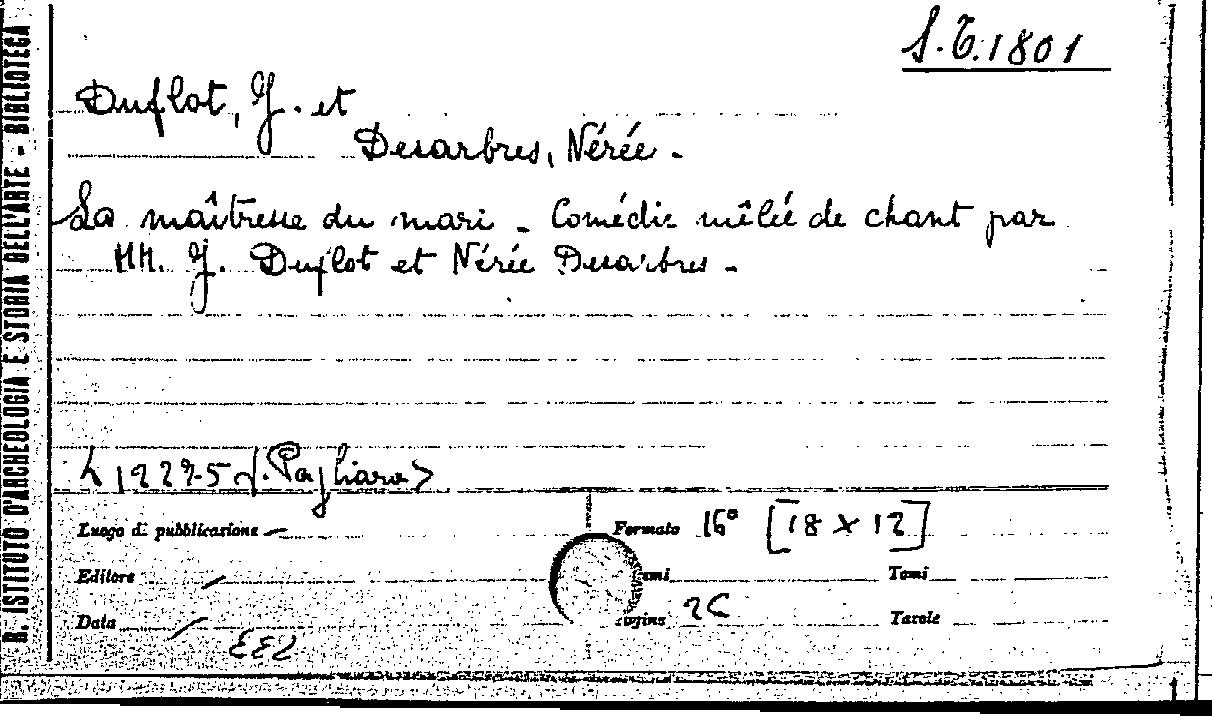 S.T. 1801
Duflot, J. et
Desarbres, Nérée.
La maîtresse du mari - Comédie mêlée de chant par
MM. J. Duflot et Nérée Desarbres -
f. Pagliara>
Luogo di pubblicazione - Formato 16° [18 x 12]
Editore / Tomi
Data / Pagine 26 Tavole
R. ISTITUTO D'ARCHEOLOGIA E STORIA DELL'ARTE - BIBLIOTECA